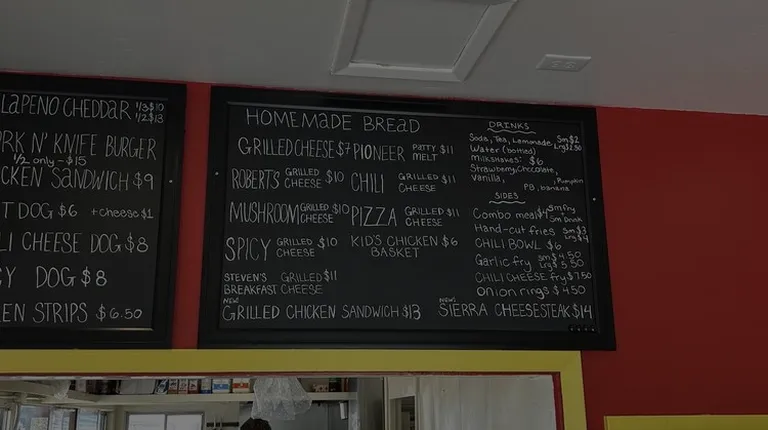 LAPENO CHEDDAR 1/3 $10
1/2 $13
RK N' KNIFE BURGER
1/2 only - $15
CKEN SANDWICH $9
T DOG $6 + cheese $1
LI CHEESE DOG $8
CY DOG $8
EN STRIPS $6.50
HOMEMADE BREAD
GRILLED CHEESE $7
ROBERTS GRILLED CHEESE $10
MUSHROOM GRILLED CHEESE $10
SPICY GRILLED CHEESE $10
STEVEN'S BREAKFAST GRILLED CHEESE $11
PIONEER PATTY MELT $11
CHILI GRILLED CHEESE $11
PIZZA GRILLED CHEESE $11
KID'S CHICKEN BASKET $6
NEW!
GRILLED CHICKEN SANDWICH $13
NEW!
SIERRA CHEESESTEAK $14
DRINKS
Soda, Tea, Lemonade Sm $2
Lrg $2.50
Water (bottled)
Milkshakes: $6
Strawberry, Chocolate,
Vanilla, Pumpkin
PB, banana
SIDES
Combo meal $4 sm fry
+
Sm Drink
Hand-cut fries Sm $3
Lrg $4
CHILI BOWL $6
Garlic fry Sm $4.50
Lrg $5.50
CHILI CHEESE fry $7.50
Onion rings $4.50